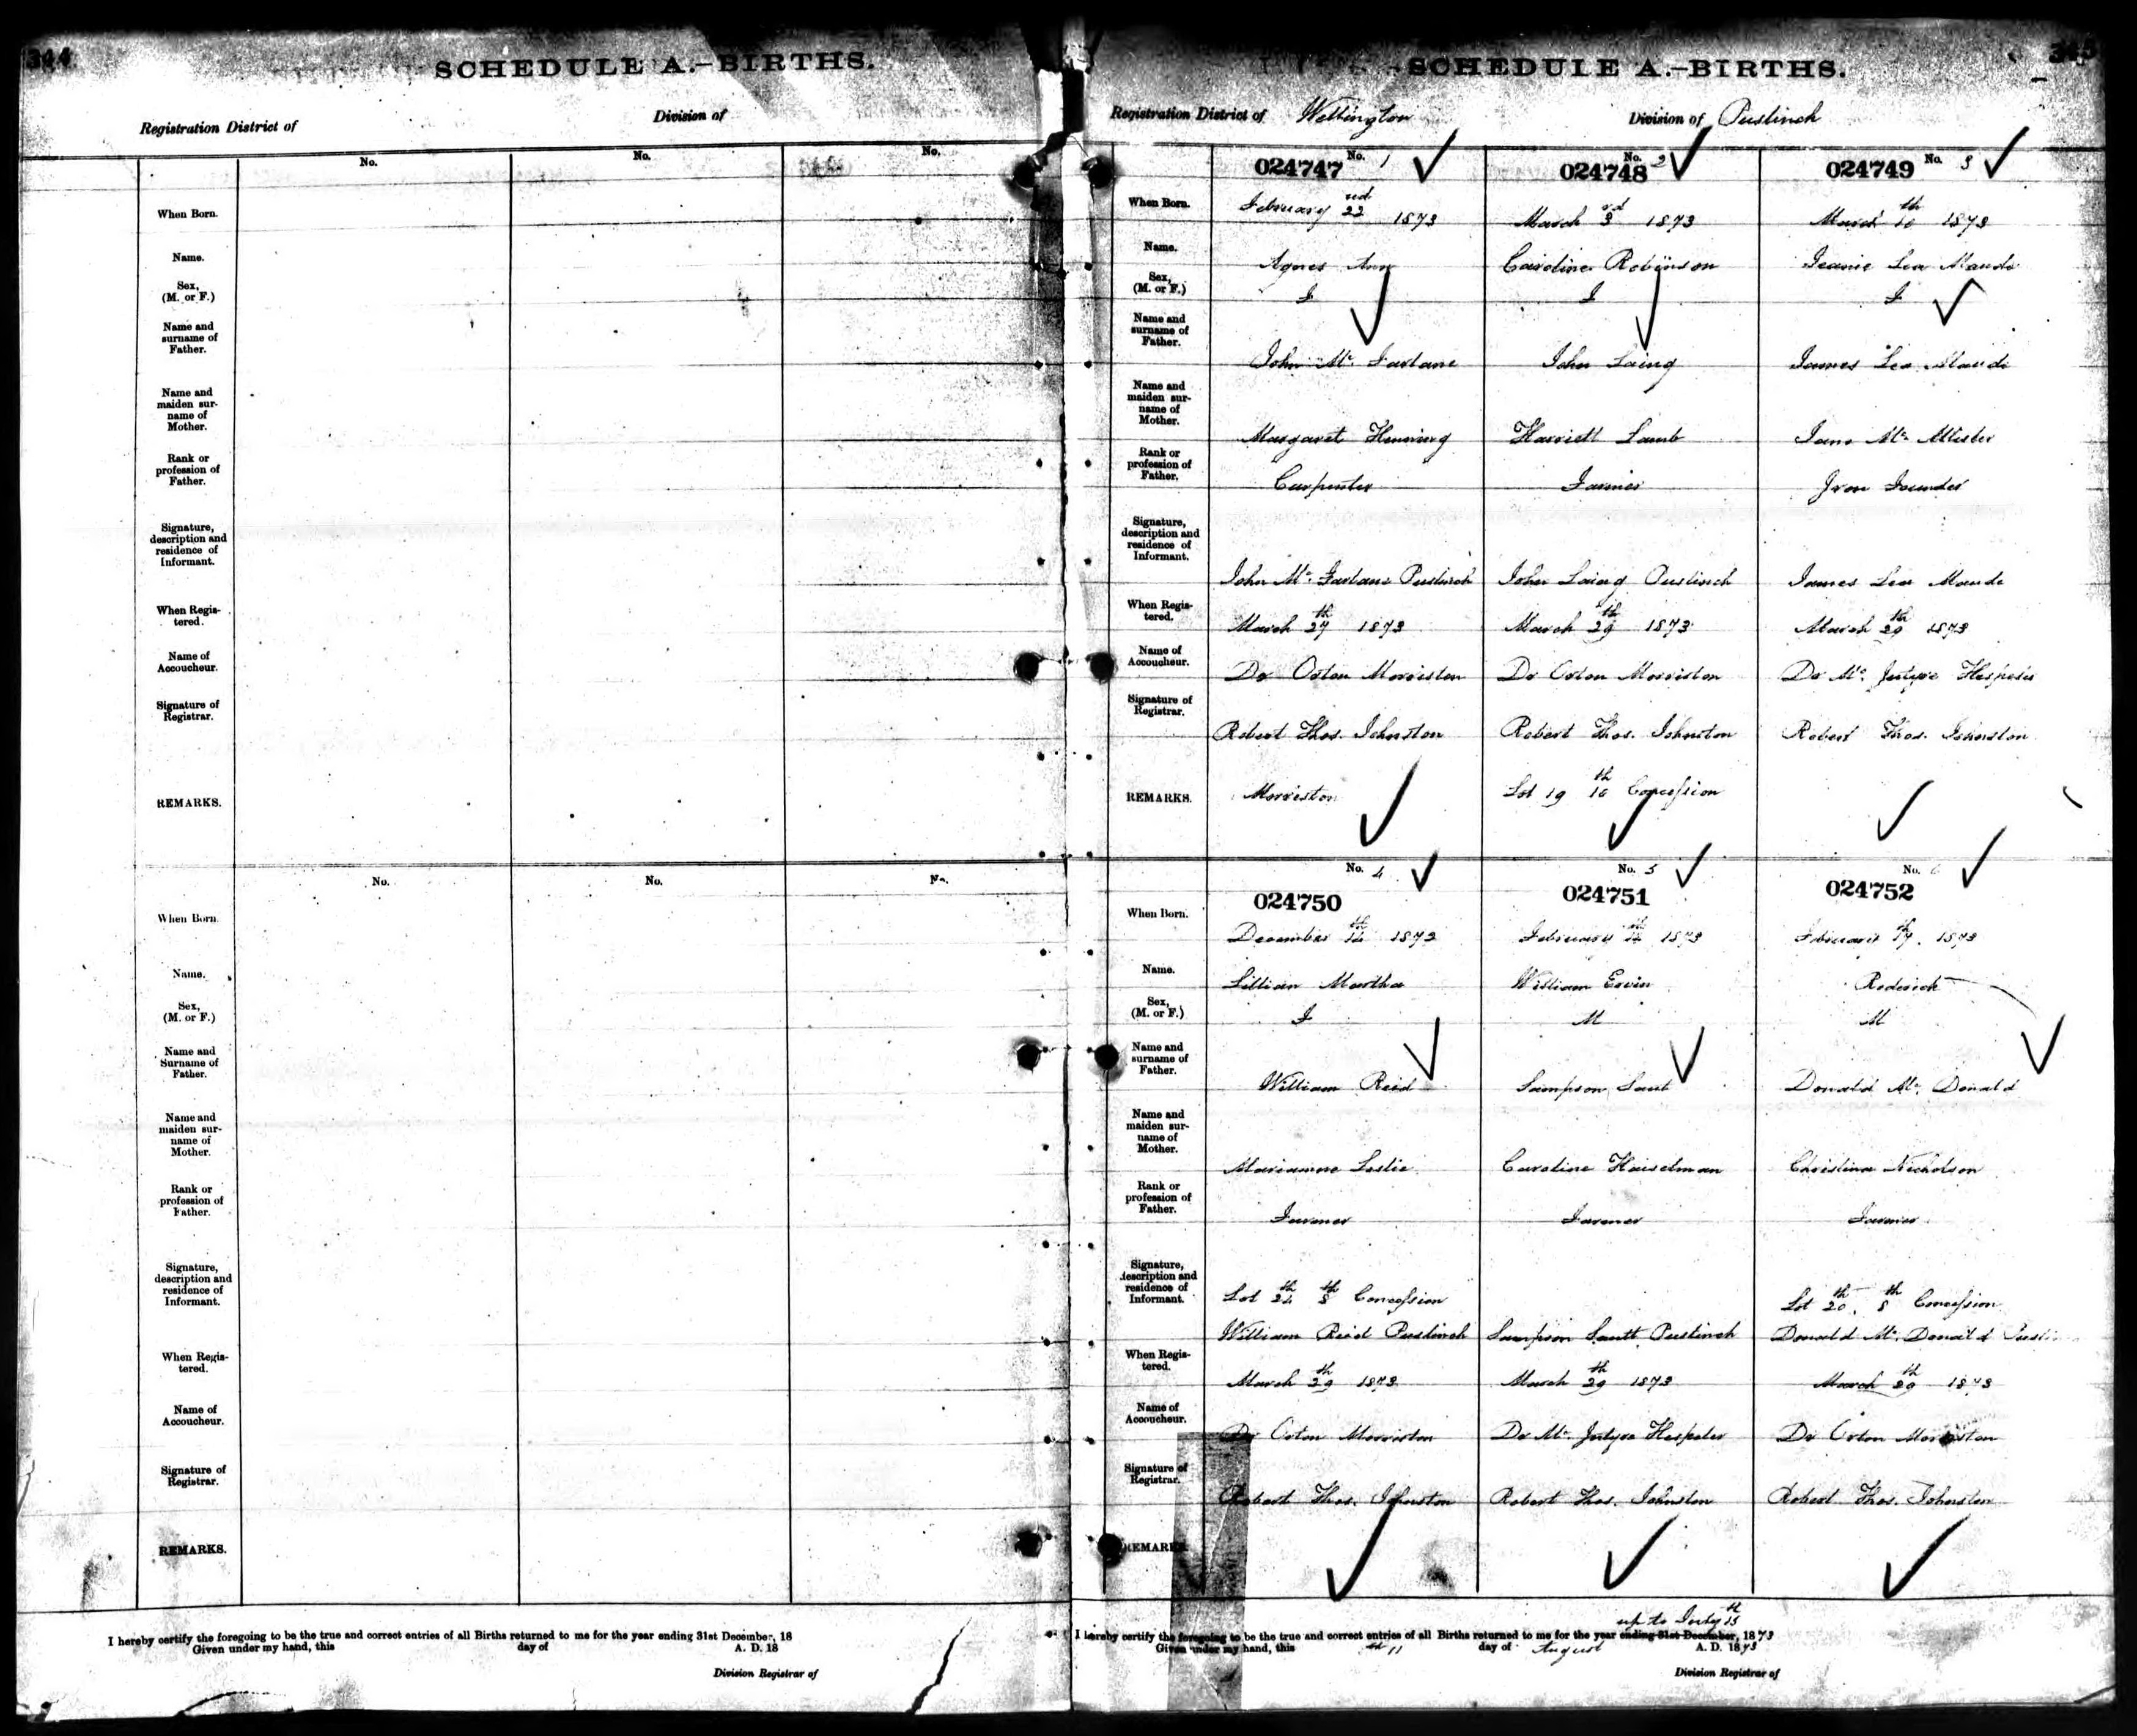 344
SCHEDULE A.-BIRTHS.
Registration District of
Division of
No.
No.
No.
When Born.
Name.
Sex,
(M. or F.)
Name and
surname of
Father.
Name and
maiden sur-
name of
Mother.
Rank or
profession of
Father.
Signature,
description and
residence of
Informant.
When Regis-
tered.
Name of
Accoucheur.
Signature of
Registrar.
REMARKS.
No.
No.
No.
When Born.
Name.
Sex,
(M. or F.)
Name and
Surname of
Father.
Name and
maiden sur-
name of
Mother.
Rank or
profession of
Father.
Signature,
description and
residence of
Informant.
When Regis-
tered.
Name of
Accoucheur.
Signature of
Registrar.
REMARKS.
I hereby certify the foregoing to be the true and correct entries of all Births returned to me for the year ending 31st December, 18
Given under my hand, this day of A. D. 18
Division Registrar of
345
SCHEDULE A.-BIRTHS.
Registration District of Wellington Division of Puslinch
No. 1 No. 2 No. 3
024747 024748 024749
When Born. February 22nd 1873 March 3rd 1873 March 10th 1873
Name. Agnes Ann Caroline Robinson Jeanie Lea Maude
Sex, (M. or F.) F F F
Name and surname of Father. John Mc Farlane John Laing James Lea Maude
Name and maiden sur-name of Mother. Margaret Henning Harriett Lamb Jane Mc Alister
Rank or profession of Father. Carpenter Farmer Iron Founder
Signature, description and residence of Informant. John Mc Farlane Puslinch John Laing Puslinch James Lea Maude
When Regis-tered. March 27th 1873 March 29th 1873 March 29th 1873
Name of Accoucheur. Dr Orton Morriston Dr Orton Morriston Dr Mc Intyre Hespeler
Signature of Registrar. Robert Thos. Johnston Robert Thos. Johnston Robert Thos. Johnston
REMARKS. Morriston Lot 19 10th Concession
No. 4 No. 5 No. 6
024750 024751 024752
When Born. December 1873 February 1873 February 17th 1873
Name. Lillian Martha William Ervin Roderick
Sex, (M. or F.) F M M
Name and surname of Father. William Reid Sampson Donald Mc Donald
Name and maiden sur-name of Mother. Marianne Leslie Caroline Haiselman Christina Nicholson
Rank or profession of Father. Farmer Farmer Farmer
Signature, description and residence of Informant. Lot 24th 8th Concession Lot 20th 8th Concession
William Reid Puslinch Sampson Puslinch Donald Mc Donald
When Regis-tered. March 29th 1873 March 29th 1873 March 29th 1873
Name of Accoucheur. Dr Orton Morriston Dr Mc Intyre Hespeler Dr Orton Morriston
Signature of Registrar. Robert Thos. Johnston Robert Thos. Johnston Robert Thos. Johnston
REMARKS.
up to July 15th
I hereby certify the foregoing to be the true and correct entries of all Births returned to me for the year ending 31st December, 1873
Given under my hand, this 11th day of August A. D. 1873
Division Registrar of